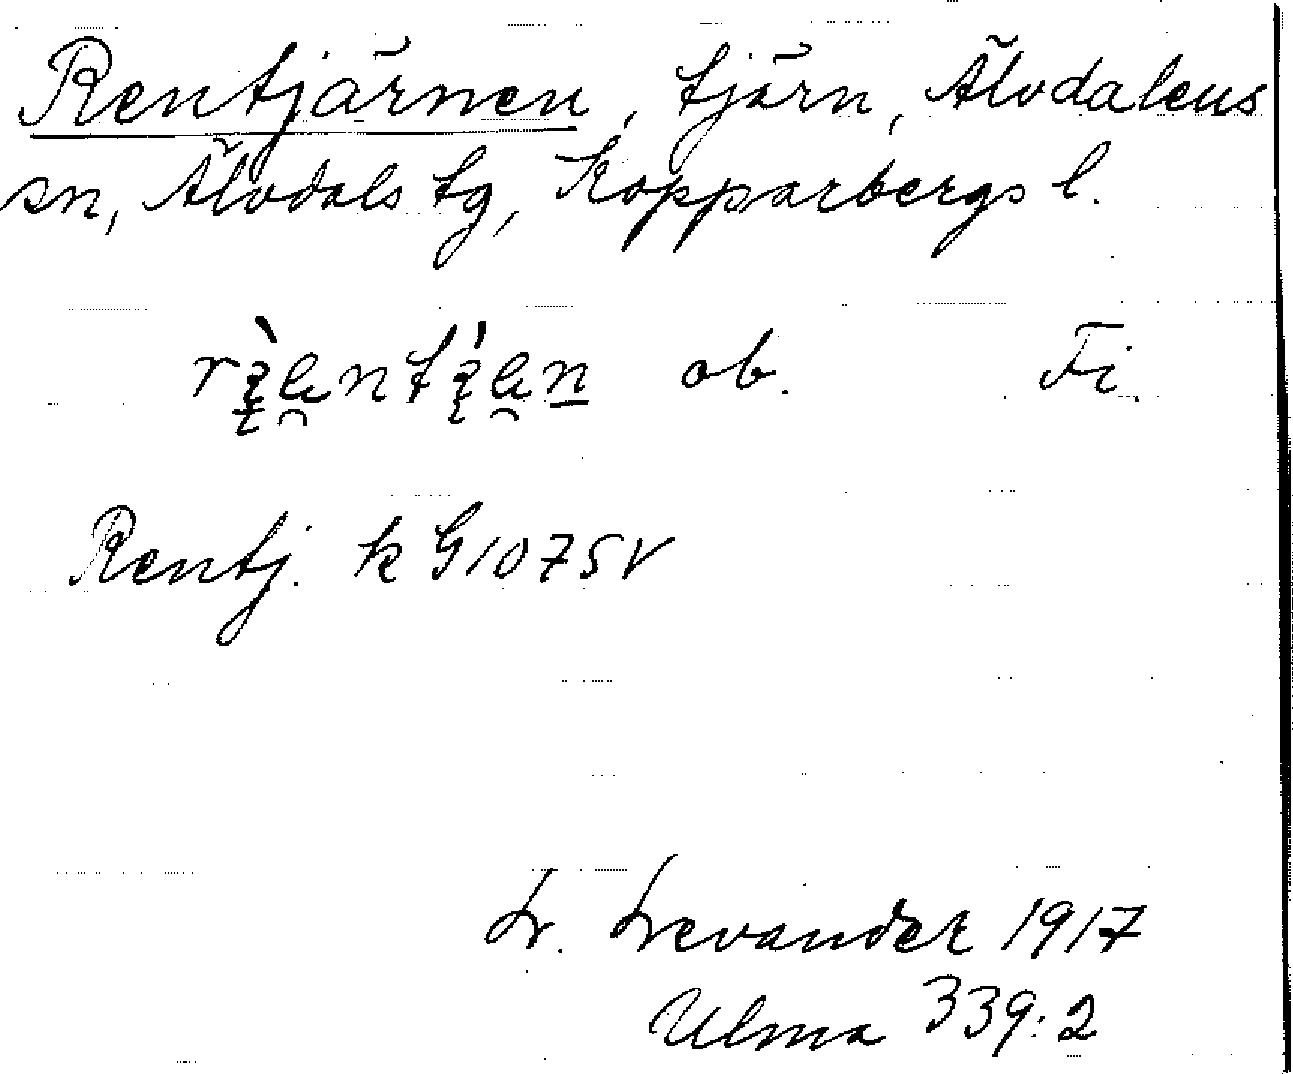 Rentjärnen, tjärn, Älvdalens
sn, Älvdals tg, Kopparbergs l.
ob. Fi.
Rentj. k G1075V
L. Levander 1917
Ulma 339:2